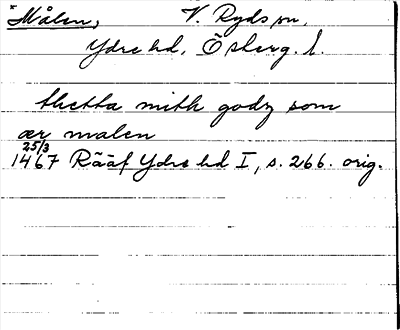 *Målen, V. Ryds sn,
Ydre hd, Österg. l.
thetta mith godz som
ær malen
25/3
1467 Rääf Ydre hd I, s. 266. orig.